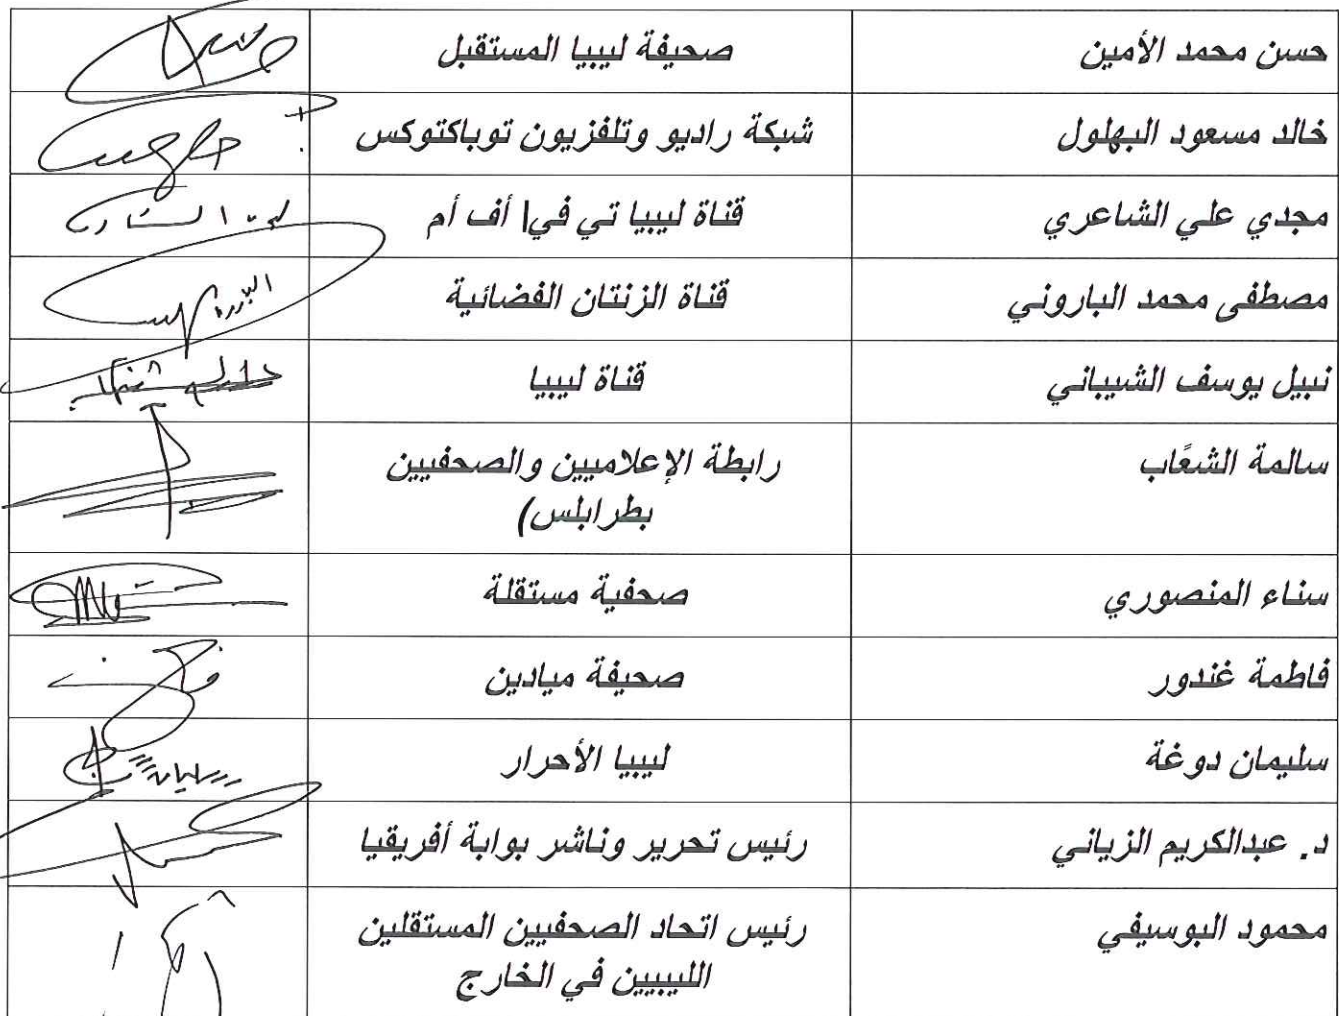 حسن محمد الأمين صحيفة ليبيا المستقبل
خالد مسعود البهلول شبكة راديو وتلفزيون توباكتوكس
مجدي علي الشاعري قناة ليبيا تي في| أف أم
مصطفى محمد الباروني قناة الزنتان الفضائية
نبيل يوسف الشيباني قناة ليبيا
سالمة الشعًاب رابطة الإعلاميين والصحفيين
بطرابلس)
سناء المنصوري صحفية مستقلة
فاطمة غندور صحيفة ميادين
سليمان دوغة ليبيا الأحرار
د. عبدالكريم الزياني رئيس تحرير وناشر بوابة أفريقيا
محمود البوسيفي رئيس اتحاد الصحفيين المستقلين
الليبيين في الخارج